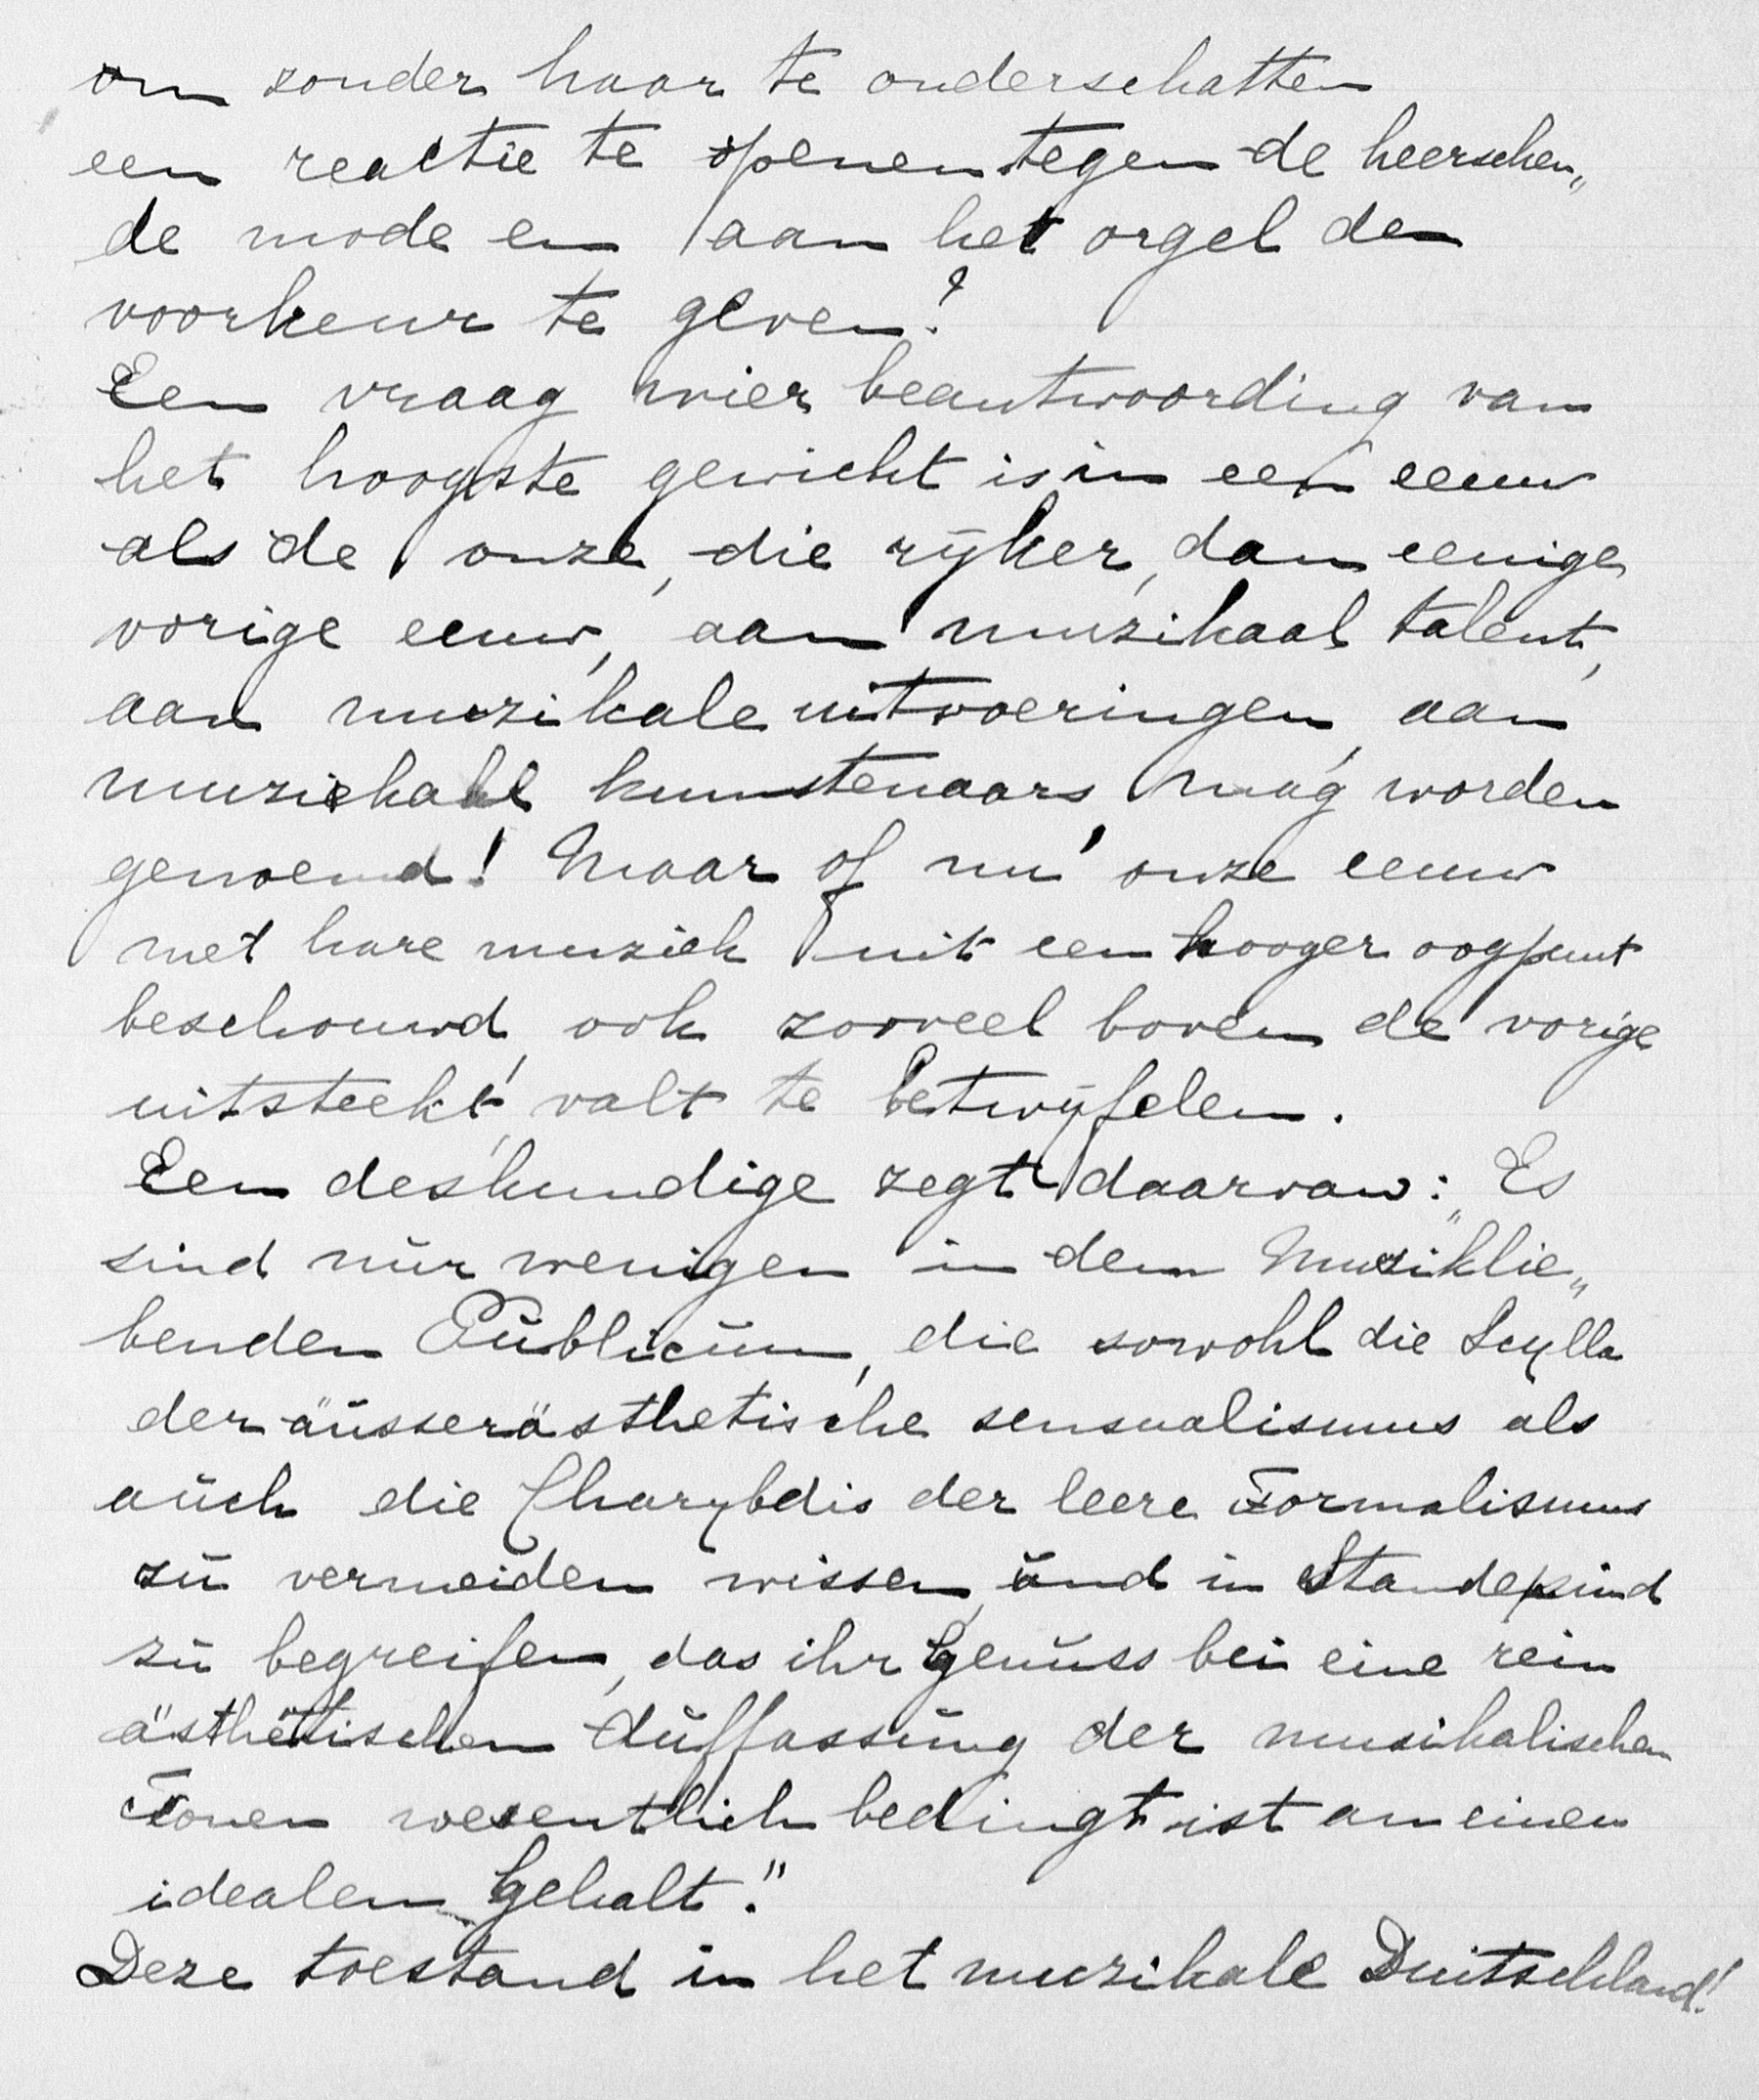 om zonder haar te onderschatten
een reactie te openen tegen de heerschen„
de mode en aan het orgel den
voorkeur te geven?
Een vraag wier beantwoording van
het hoogste gewicht is in een eeuw
als de onze, die rijker, dan eenige
vorige eeuw, aan muzikaal talent,
aan muzikale uitvoeringen, aan
muzikale kunstenaars mag worden
genoemd! Maar of nu onze eeuw
met hare muziek uit een hooger oogpunt
beschouwd, ook zooveel boven de vorige
uitsteekt, valt te betwijfelen.
Een deskundige zegt daarvan: „Es
sind nūr wenigen in dem Musiklie„
benden Pūblicūm, die sowohl die Scylla
der äūsserästhetische sensualismus als
aūch die Charybdis der leere Formalismus
zū vermeiden wissen, ūnd in Stande sind
zū begreifen, das ihr Genūss bei eine rein
ästhetischen Aūffassūng der musikalischen
Tonen wesentlich bedingt ist am einen
idealen Gehalt."
Deze toestand in het muzikale Duitschland!